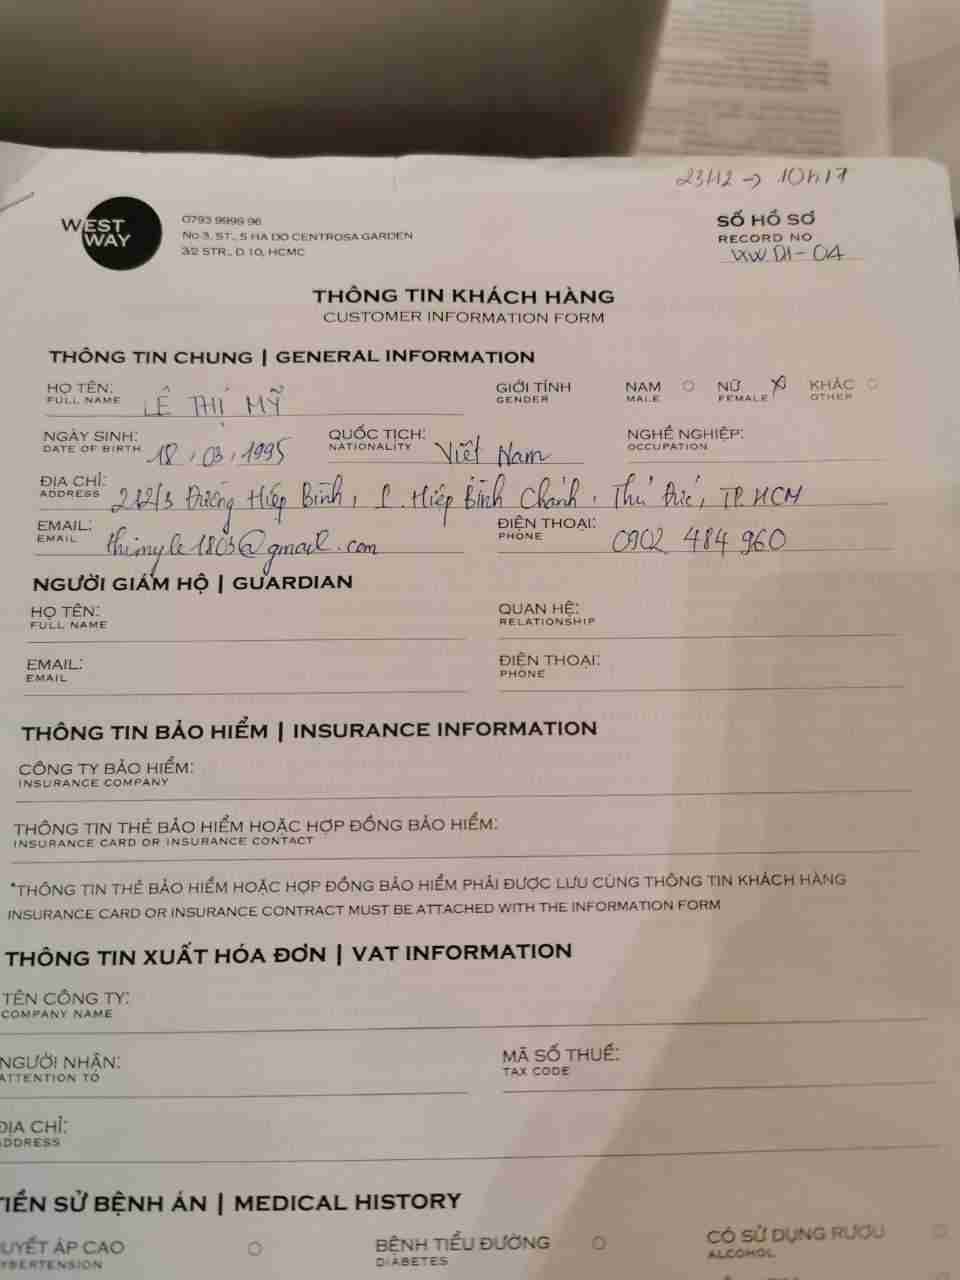 23/12 → 10h17
WEST WAY
0793 9999 96
No 3, ST., 5 HA DO CENTROSA GARDEN
3/2 STR., D 10, HCMC
SỐ HỒ SƠ
RECORD NO
WWD1-04
THÔNG TIN KHÁCH HÀNG
CUSTOMER INFORMATION FORM
THÔNG TIN CHUNG | GENERAL INFORMATION
HỌ TÊN: LÊ THỊ MỸ GIỚI TÍNH NAM NỮ KHÁC
FULL NAME GENDER MALE FEMALE OTHER
NGÀY SINH: 18.03.1995 QUỐC TỊCH: Việt Nam NGHỀ NGHIỆP:
DATE OF BIRTH NATIONALITY OCCUPATION
ĐỊA CHỈ: 212/3 Đường Hiệp Bình, P. Hiệp Bình Chánh, Thủ Đức, TP. HCM
ADDRESS
EMAIL: thimyle1803@gmail.com ĐIỆN THOẠI: 0902 484 960
EMAIL PHONE
NGƯỜI GIÁM HỘ | GUARDIAN
HỌ TÊN: QUAN HỆ:
FULL NAME RELATIONSHIP
EMAIL: ĐIỆN THOẠI:
EMAIL PHONE
THÔNG TIN BẢO HIỂM | INSURANCE INFORMATION
CÔNG TY BẢO HIỂM:
INSURANCE COMPANY
THÔNG TIN THẺ BẢO HIỂM HOẶC HỢP ĐỒNG BẢO HIỂM:
INSURANCE CARD OR INSURANCE CONTACT
*THÔNG TIN THẺ BẢO HIỂM HOẶC HỢP ĐỒNG BẢO HIỂM PHẢI ĐƯỢC LƯU CÙNG THÔNG TIN KHÁCH HÀNG
INSURANCE CARD OR INSURANCE CONTRACT MUST BE ATTACHED WITH THE INFORMATION FORM
THÔNG TIN XUẤT HÓA ĐƠN | VAT INFORMATION
TÊN CÔNG TY:
COMPANY NAME
NGƯỜI NHẬN: MÃ SỐ THUẾ:
ATTENTION TO TAX CODE
ĐỊA CHỈ:
ADDRESS
TIỀN SỬ BỆNH ÁN | MEDICAL HISTORY
UYẾT ÁP CAO BỆNH TIỂU ĐƯỜNG CÓ SỬ DỤNG RƯỢU
YPERTENSION DIABETES ALCOHOL